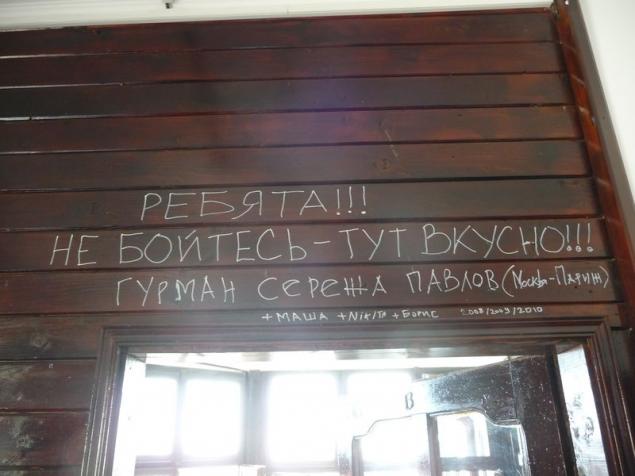 РЕБЯТА!!!
НЕ БОЙТЕСЬ - ТУТ ВКУСНО!!!
ГУРМАН СЕРЕЖА ПАВЛОВ (Москва-Париж)
+ МАША + NikiTA + БОРИС 2008/2009/2010
В